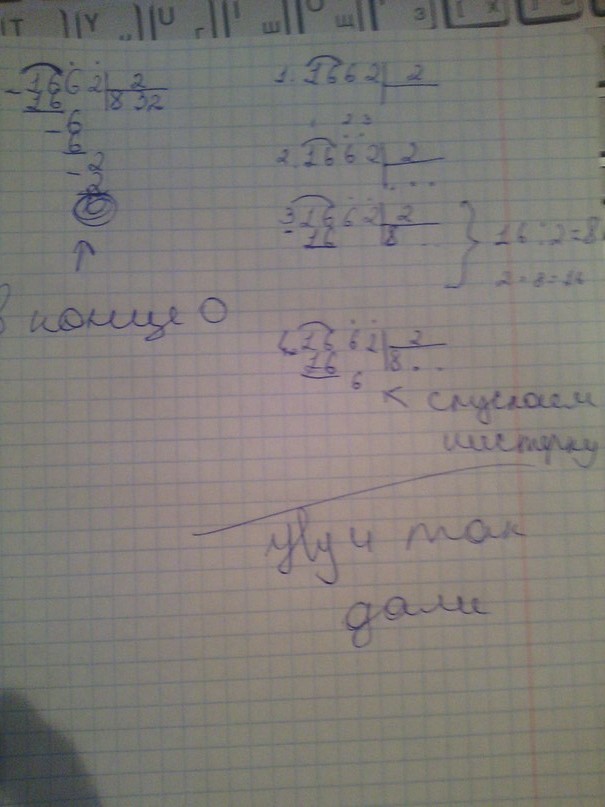 - 1662 | 2
16 832
- 6
6
- 2
2
0
в конце 0
1. 1662 | 2
1 2 3
2. 1662 | 2
. . .
3. 1662 | 2
- 16 8 . .
16 : 2 = 8
4. 1662 | 2
16 8 . .
6
< спускаем
шестерку
Ну и так
дали